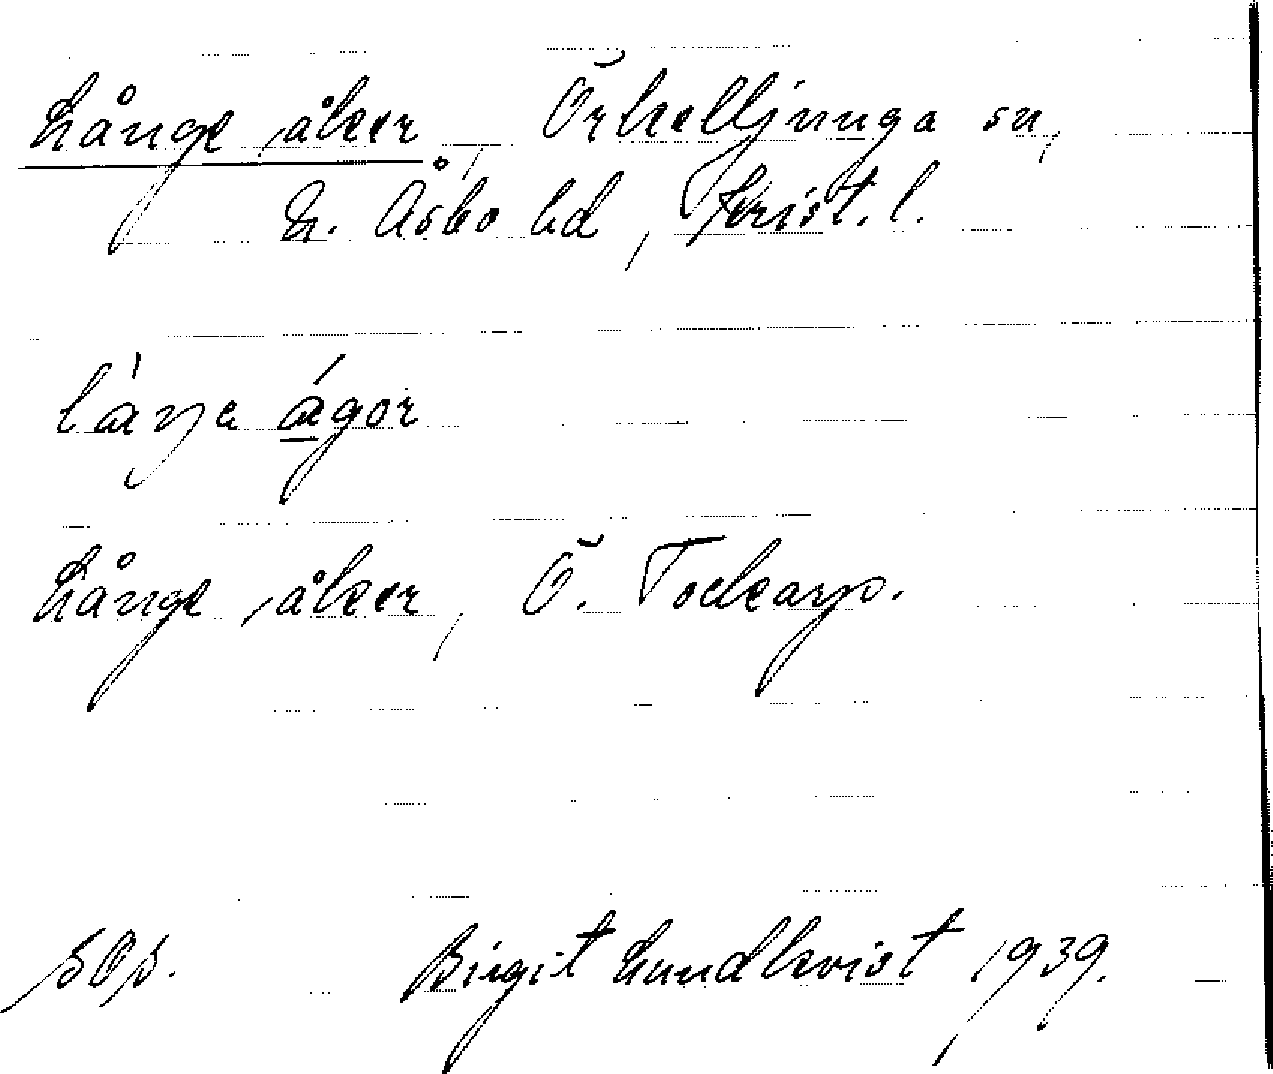 Långe åker, Örkelljunga sn,
N. Åsbo hd, Krist. l.
láŋa ágor
Långe åker, Ö. Tockarp.
Birgit Lundkvist 1939.